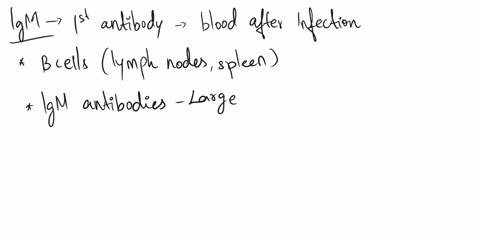 IgM → 1st antibody → blood after Infection
* B cells (lymph nodes, spleen)
* IgM antibodies - Large